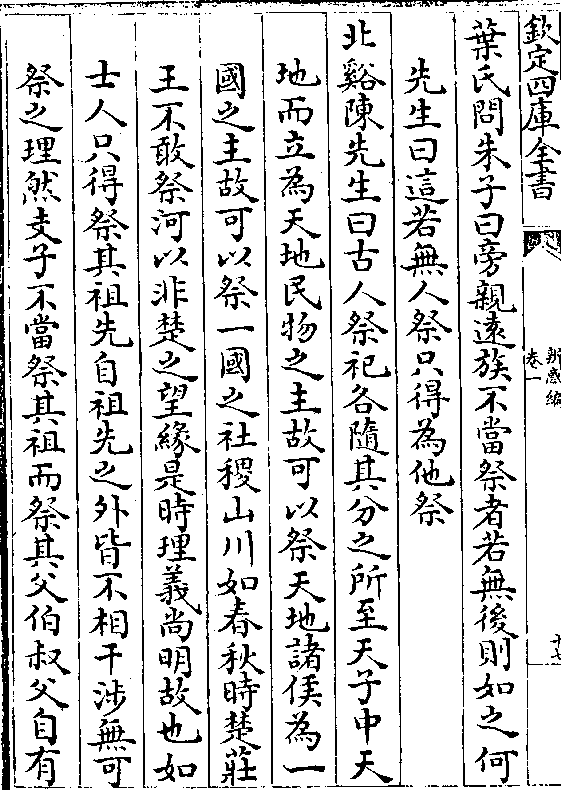 欽定四庫全書
辨惑編
卷一
十七
葉氏問朱子曰旁親遠族不當祭者若無後則如之何
先生曰這若無人祭只得為他祭
北谿陳先生曰古人祭祀各隨其分之所至天子中天
地而立為天地民物之主故可以祭天地諸侯為一
國之主故可以祭一國之社稷山川如春秋時楚莊
王不敢祭河以非楚之望緣是時理義尚明故也如
士人只得祭其祖先自祖先之外皆不相干涉無可
祭之理然支子不當祭其祖而祭其父伯叔父自有